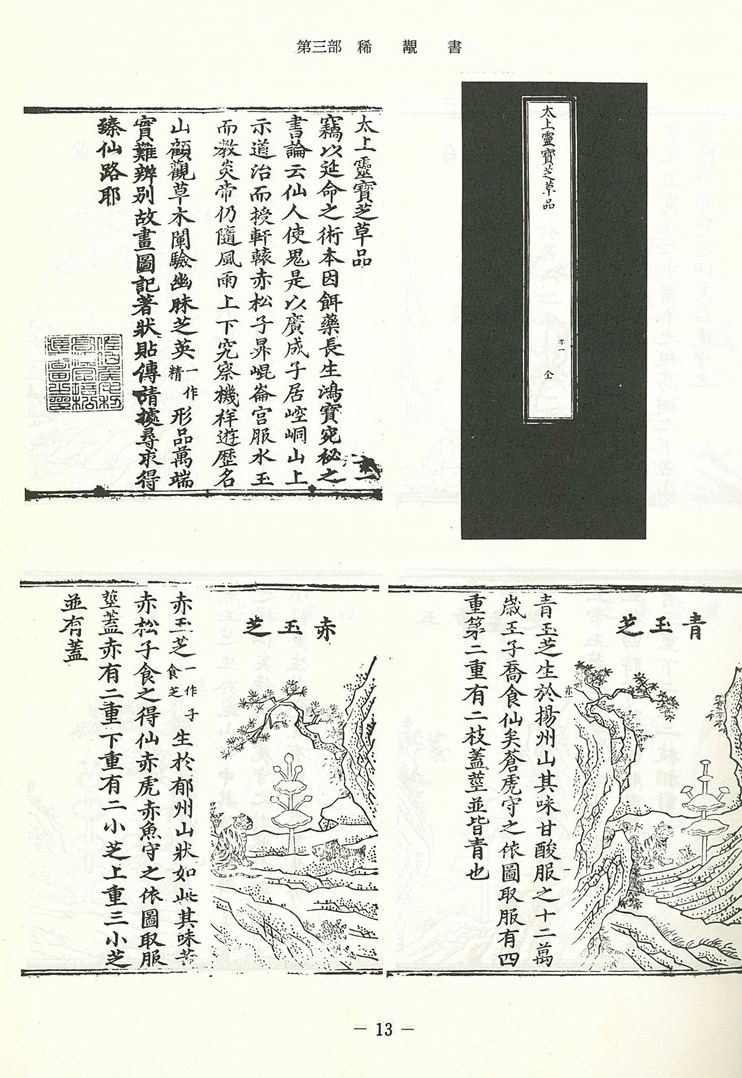 第三部 稀覯書
太上靈寶芝草品
全
太上靈寶芝草品
竊以延命之術本因餌藥長生鴻寳宛秘之
書論云仙人使鬼是以廣成子居崆峒山上
示道治而授軒轅赤松子昇崐崙宫服水玉
而教炎帝仍隨風雨上下究察機样遊歷名
山顧觀草木闡驗幽昧芝英一作精形品萬端
實難辨别故畫圖記著状貼傳請據尋求得
臻仙路耶
青玉芝
青玉芝生於揚州山其味甘酸服之十二萬
歳王子喬食仙矣蒼虎守之依圖取服有四
重第二重有二枝蓋莖並皆青也
赤玉芝
赤玉芝一作子食芝生於郁州山狀如此其味苦
赤松子食之得仙赤虎赤魚守之依圖取服
莖蓋赤有二重下重有二小芝上重三小芝
並有蓋
— 13 —